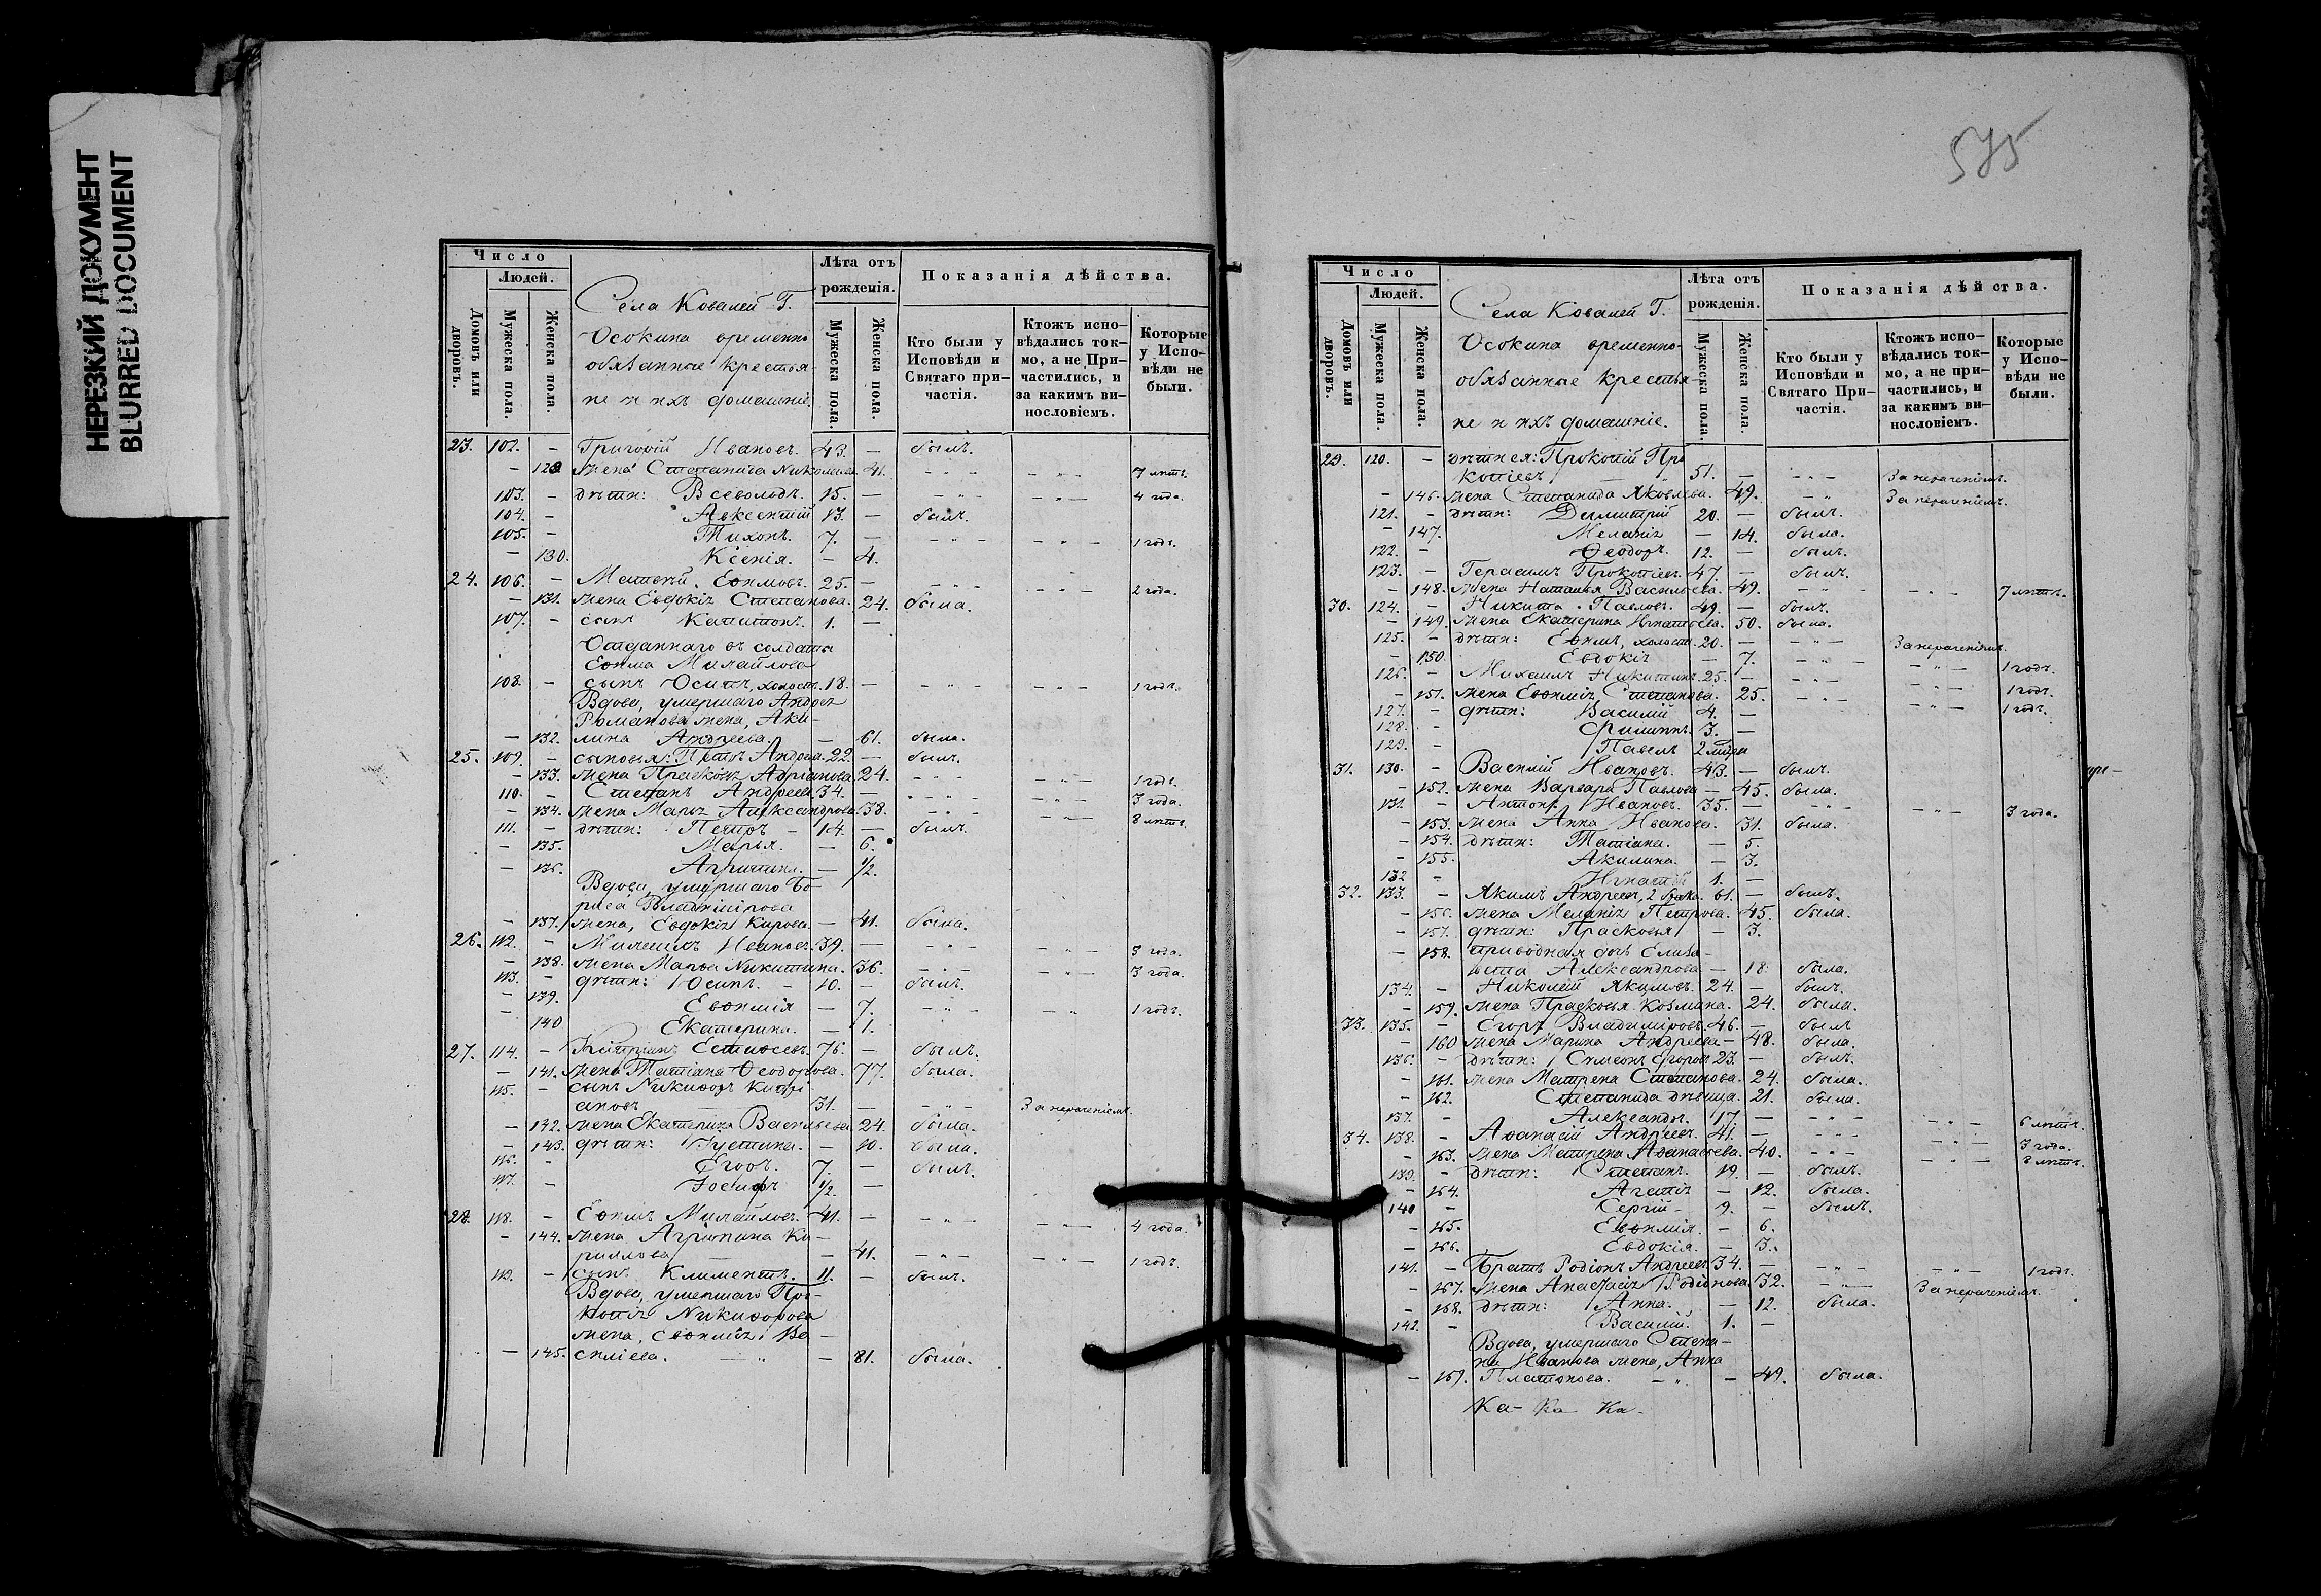 НЕРЕЗКИЙ ДОКУМЕНТ
BLURRED DOCUMENT
Число
Людей.
Домовъ или дворовъ.
Мужеска пола.
Женска пола.
Села Ковалей Г.
Осокина временно
обязанные крестья-
не и ихъ домашніе.
Лѣта отъ рожденія.
Мужеска пола.
Женска пола.
Показанія дѣйства.
Кто были у Исповѣди и Святаго при-частія.
Ктожъ испо-вѣдались ток-мо, а не При-частились, и за какимъ ви-нословіемъ.
Которые у Испо-вѣди не были.
23. 102. – Григорій Ивановъ. 43. – былъ.
– 129 жена Степанида Николаева. 41. – „ – – „ – 7 лѣтъ.
103. – дѣти: Всеволодъ. 15. – – „ – – „ – 4 года.
104. – Авксентій 13. – былъ.
105. – Тихонъ. 7. – – „ – – „ – 1 годъ.
– 130. Ксенія. – 4.
24. 106. – Матвѣй Ефимовъ. 25. – – „ – – „ – 2 года.
– 131. жена Евдокія Степанова. 24. была.
107. – сынъ Капитонъ. 1. –
Отданнаго въ солдаты
Ефима Михайлова
108. – сынъ Осипъ, холостъ. 18. – – „ – – „ – 1 годъ.
Вдова, умершаго Андрея
Романова жена, Аки-
– 132. лина Андреева. – 61. была.
25. 109. – сыновья: Петръ Андреев. 22. – былъ.
– 133. жена Прасковья Адріанова. 24. – „ – – „ – 1 годъ.
110. – Степанъ Андреев. 34. – – „ – – „ – 3 года.
– 134. жена Марья Александрова. 38. – „ – – „ – 8 лѣтъ.
111. – дѣти: Петръ – 14. – былъ.
– 135. Марья. – 6.
– 136. Агрипина. – 1/2.
Вдова, умершаго Бо-
риса Владимірова
– 137. жена, Евдокія Кирова. – 41. была.
26. 112. – Михаилъ Ивановъ. 39. – – „ – – „ – 3 года.
– 138. жена Марья Никитина. 36. – „ – – „ – 3 года.
113. – дѣти: Осипъ. – 10. – былъ.
– 139. Евфимія – 7. – „ – – „ 1 годъ.
– 140 Екатерина. – 1.
27. 114. – Кипріанъ Естифеевъ. 76. – былъ.
– 141. жена Татіана Феодорова. 77. была.
115. – сынъ Никифоръ Кипрі-
ановъ 31. – – „ – За нераченіемъ.
– 142. жена Екатерина Васильева. 24. была.
– 143. дѣти: Іустина. – 10. была.
116. – Егоръ. 7. – былъ.
117. – Іосифъ 1/2. –
28. 118. – Ефимъ Михайловъ. 41. – – „ – – „ – 4 года.
– 144. жена Агрипина Ки-
риллова – 41. – „ – – „ – 1 годъ.
119. – сынъ Климентъ. 11. – былъ.
Вдова, умершаго Про-
копія Никифорова
жена, Евфимія Ва-
– 145. силіева. – „ – 81. была.
575
Число
Людей.
Домовъ или дворовъ.
Мужеска пола.
Женска пола.
Села Ковалей Г.
Осокина временно-
обязанные крестья-
не и ихъ домашніе.
Лѣта отъ рожденія.
Мужеска пола.
Женска пола.
Показанія дѣйства.
Кто были у Исповѣди и Святаго При-частія.
Ктожъ испо-вѣдались ток-мо, а не при-частились, и за какимъ ви-нословіемъ.
Которые у Испо-вѣди не были.
29. 120. – дѣти ея: Прокопій Про
копіевъ 51. – – „ – За нераченіемъ.
– 146. жена Степанида Яковлева. 49. – „ За нераченіемъ.
121. – дѣти: Димитрій 20. – былъ.
– 147. Меланія – 14. была.
122. – Феодоръ. 12. – былъ.
123. – Герасимъ Прокопіевъ. 47. – былъ.
– 148. жена Наталья Васильева. 49. – „ – – „ – 7 лѣтъ.
30. 124. – Никита Павловъ. 49. – былъ.
– 149. жена Екатерина Игнатьева. 50. была.
125. – дѣти: Ефимъ, холостъ. 20. – – „ – За нераченіемъ.
– 150. Евдокія – 7. – „ – – „ – 1 годъ.
126. – Михаилъ Никитинъ. 25. – – „ – – „ – 1 годъ.
– 151. жена Евфимія Степанова. 25. – „ – – „ – 1 годъ.
127. – дѣти: Василій 4. –
128. – Филиппъ. 3. –
129. – Павелъ 2 мѣсяца
31. 130. – Василій Ивановъ. 43. – былъ.
– 152. жена Варвара Павлова – 45. была.
131. – Антонъ Ивановъ. 35. – – „ – – „ – 3 года.
– 153. жена Анна Иванова. 31. была.
– 154. дѣти: Татіана. – 5.
– 155. Акилина. – 3.
132 – Игнатій 1. –
32. 133. – Якимъ Андреевъ, 2 брака. 61. – былъ.
– 156. жена Меланія Петрова. 45. была.
– 157. дѣти: Прасковья – 3.
– 158. приводная дочь Елиза-
вета Александрова – 18. была.
134. – Николай Якимовъ. 24. – былъ.
– 159. жена Прасковья Козмина. 24. была.
33. 135. – Егоръ Владиміровъ. 46. – былъ
– 160 жена Марина Андреева – 48. была.
136. – дѣти: Симеонъ Егоровъ 23. – былъ.
– 161. жена Матрена Степанова. 24. была.
– 162. Степанида дѣвица. 21. была.
137. – Александръ. 17. – – „ – – „ – 6 лѣтъ.
34. 138. – Афанасій Андреевъ. 41. – – „ – – „ – 3 года.
– 163. жена Матрена Афанасьева. 40. – „ – – „ – 8 лѣтъ.
139. – дѣти: Степанъ. 19. – былъ.
– 164. Агапія – 12. была.
140 – Сергій – 9. – былъ.
– 165. Евфимія. – 6.
– 166. Евдокія. – 3.
141. – Братъ Родіонъ Андреевъ 34. – – „ – – „ – 1 годъ.
– 167. жена Анастасія Родіонова 32. – „ – За нераченіемъ.
– 168. дѣти: Анна. – 12. была.
142. – Василій. 1. –
Вдова, умершаго Степа-
на Иванова жена, Анна
– 169. Платонова. – „ – 49. была.
Ка- Ка Ка-